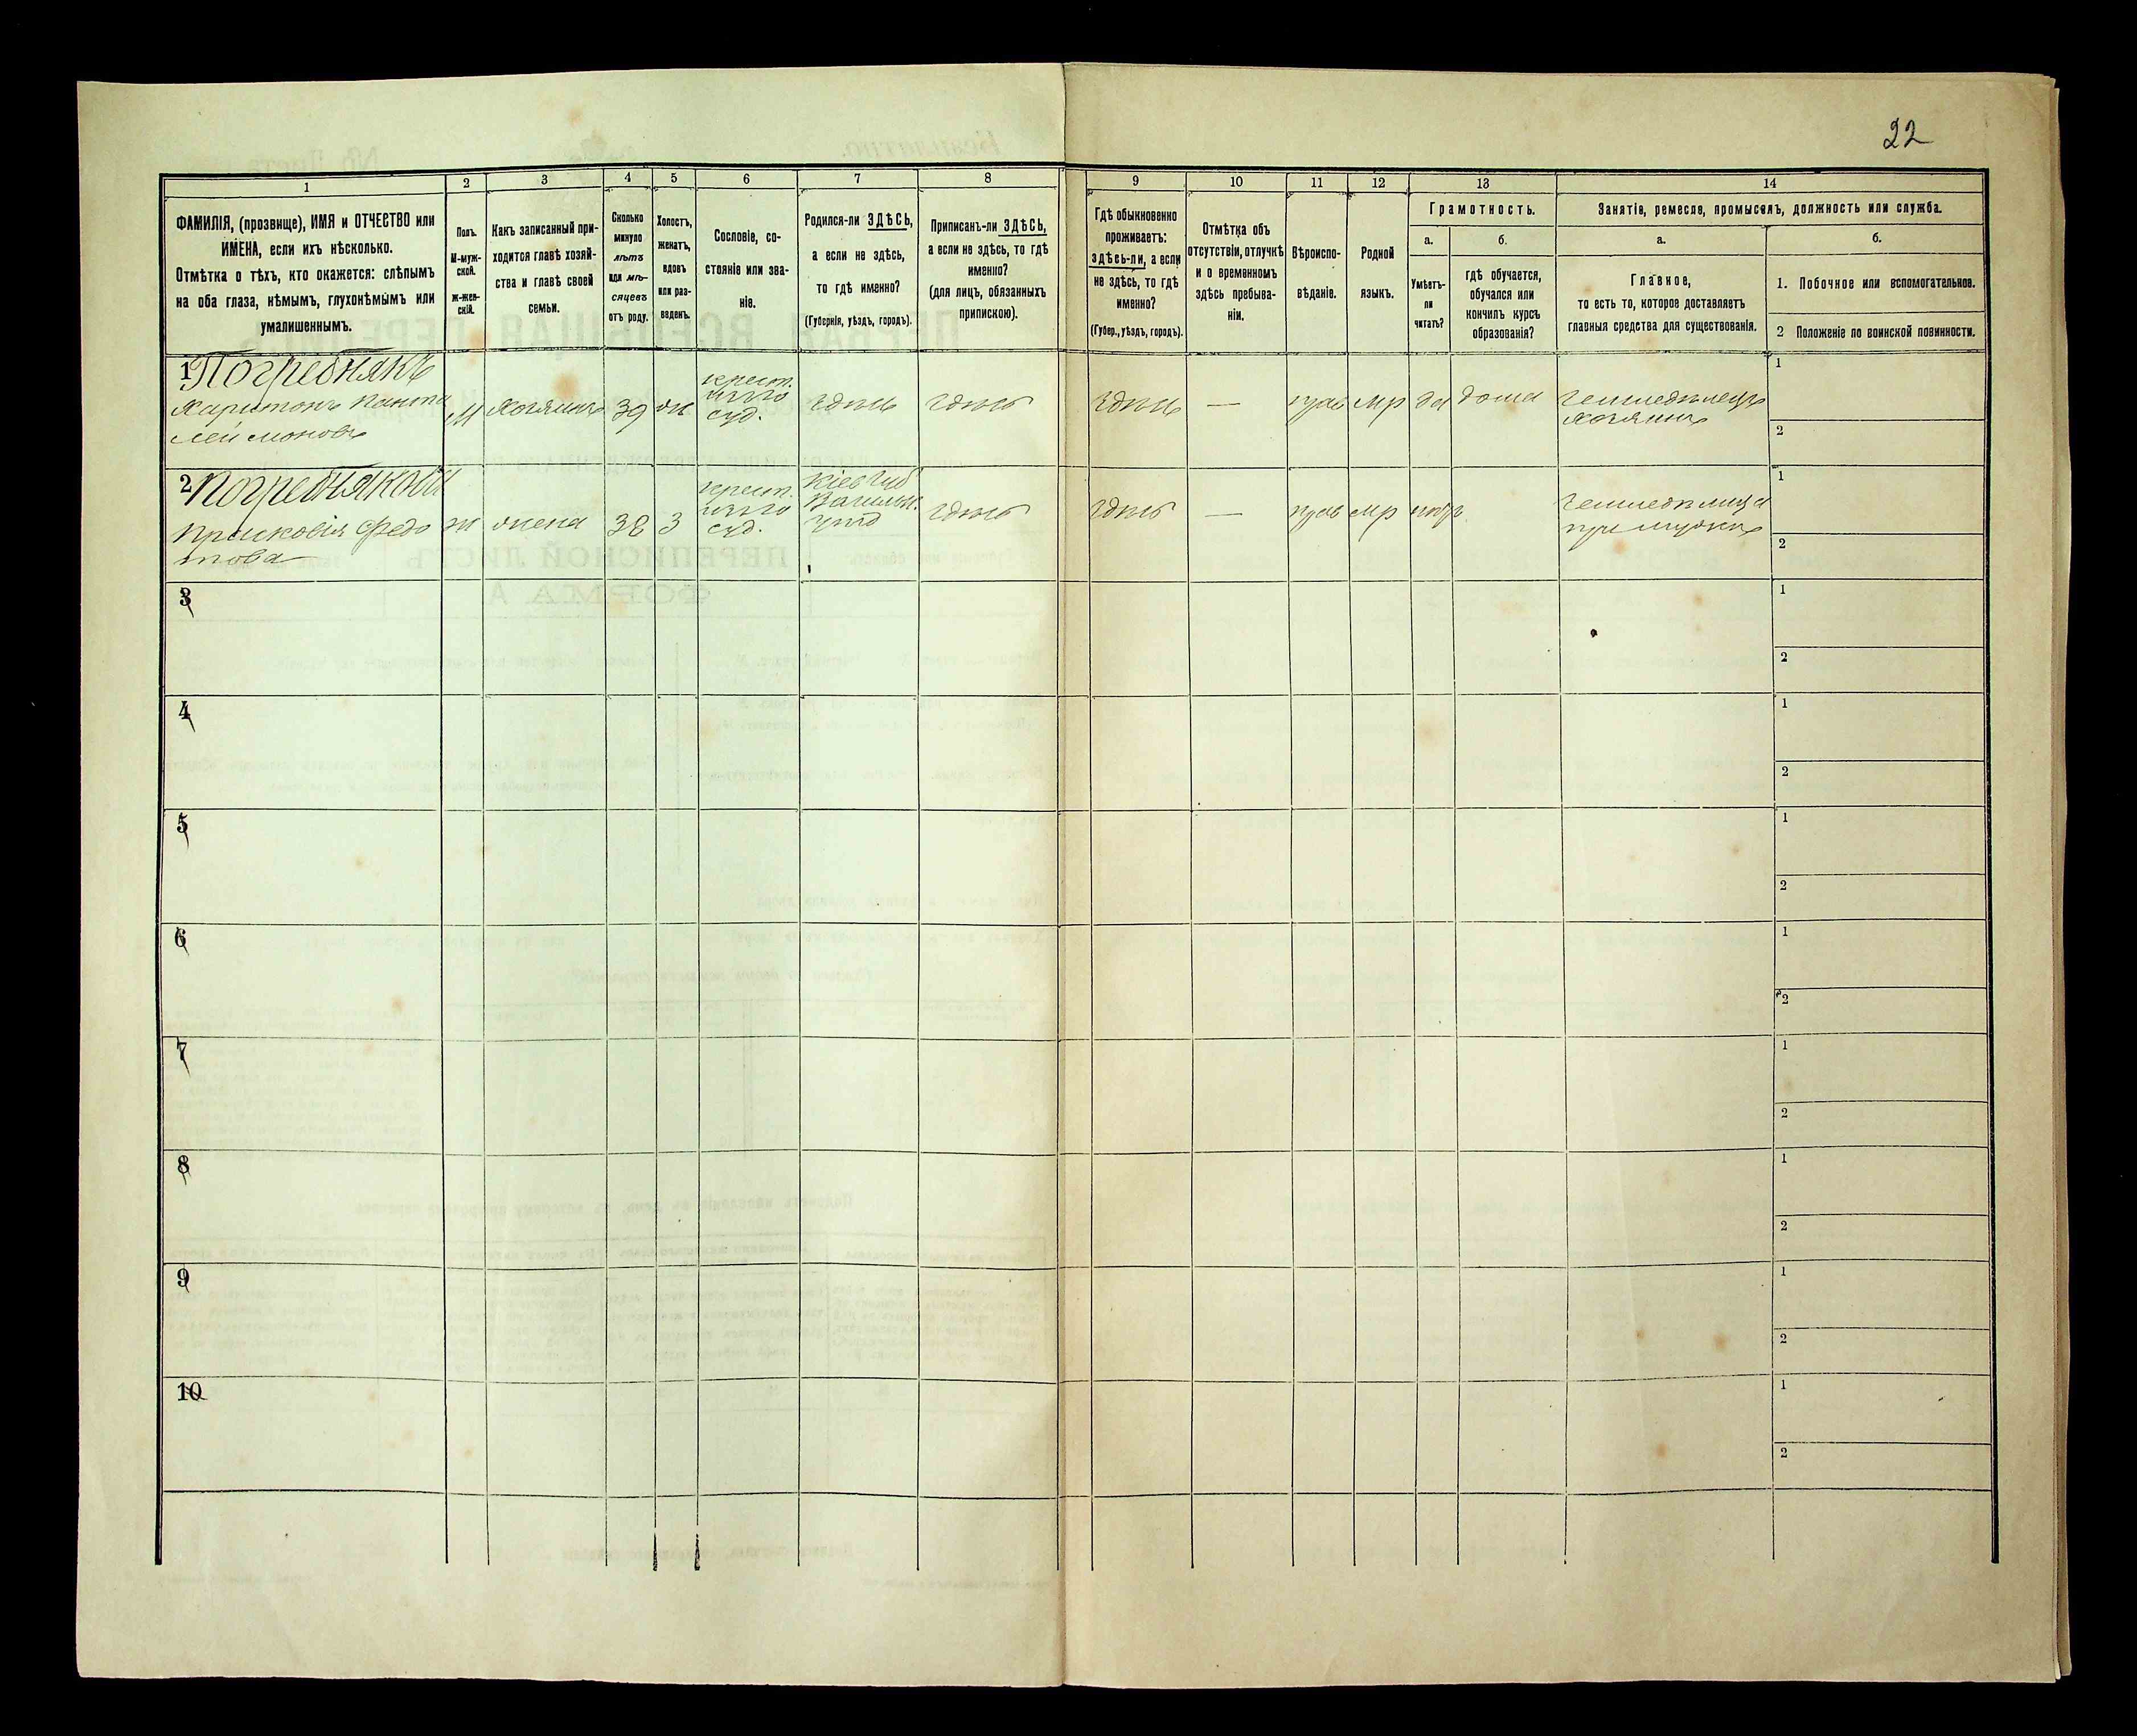 22
1
2
3
4
5
6
7
8
9
10
11
12
13
14
ФАМИЛІЯ, (прозвище), ИМЯ и ОТЧЕСТВО или
ИМЕНА, если ихъ нѣсколько.
Отмѣтка о тѣхъ, кто окажется: слѣпымъ
на оба глаза, нѣмымъ, глухонѣмымъ или
умалишеннымъ.
Полъ.
М-муж-
ской.
ж-жен-
скій.
Какъ записанный при-
ходится главѣ хозяй-
ства и главѣ своей
семьи.
Сколько
минуло
лѣтъ
или мѣ-
сяцевъ
отъ роду.
Холостъ,
женатъ,
вдовъ
или раз-
веденъ.
Сословіе, со-
стояніе или зва-
ніе.
Родился-ли ЗДѢСЬ,
а если не здѣсь,
то гдѣ именно?
(Губернія, уѣздъ, городъ).
Приписанъ-ли ЗДѢСЬ,
а если не здѣсь, то гдѣ
именно?
(для лицъ, обязанныхъ
припискою).
Гдѣ обыкновенно
проживаетъ:
здѣсь-ли, а если
не здѣсь, то гдѣ
именно?
(Губер., уѣздъ, городъ).
Отмѣтка объ
отсутствіи, отлучкѣ
и о временномъ
здѣсь пребыва-
ніи.
Вѣроиспо-
вѣданіе.
Родной
языкъ.
Грамотность.
а.
Умѣетъ-
ли
читать?
б.
гдѣ обучается,
обучался или
кончилъ курсъ
образованія?
Занятіе, ремесло, промыселъ, должность или служба.
а.
Главное,
то есть то, которое доставляетъ
главныя средства для существованія.
б.
1. Побочное или вспомогательное.
2 Положеніе по воинской повинности.
1 Погребнякъ
Харитонъ Панте
леймоновъ
М
хозяинъ
39
ж
крест.
изъ го
суд.
здѣсь
здѣсь
здѣсь
—
прав
мр
да
дома
земледѣлецъ
хозяинъ
1
2
2 Погребнякова
Прасковія Федо
това
ж
жена
38
З
крест.
изъ го
суд.
Кіев Губ
Васильк.
уѣзд
здѣсь
здѣсь
—
прав
мр
нѣтъ
земледѣлица
при мужѣ
1
2
3
1
2
4
1
2
5
1
2
6
1
2
7
1
2
8
1
2
9
1
2
10
1
2